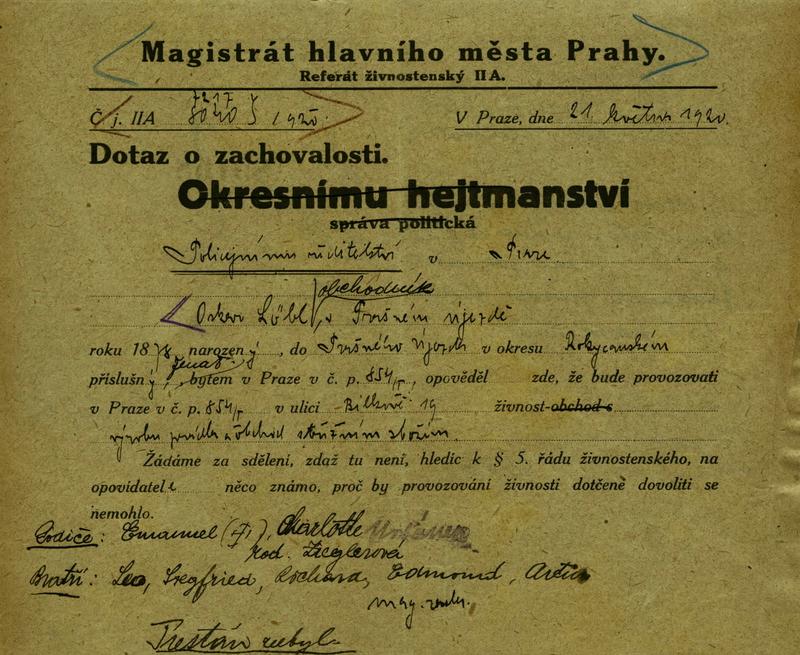 Magistrát hlavního města Prahy.
Referát živnostenský II A.
Č. j. IIA 7217 8040 5 / 1920.
V Praze, dne 21. května 1920.
Dotaz o zachovalosti.
Okresnímu hejtmanství
správa politická
Policejnímu ředitelství v Praze
obchodník
Oskar Löbl, v Přešném újezdě
roku 1878 narozený, do Přešného Újezda v okresu Rokycanském
ženat
příslušný, bytem v Praze v č. p. 854/I, opověděl zde, že bude provozovati
v Praze v č. p. 854/I v ulici Bílkově 19 živnost obchod s
výrobu prádla a obchod střižním zbožím.
Žádáme za sdělení, zdaž tu není, hledíc k § 5. řádu živnostenského, na
opovidateli něco známo, proč by provozování živnosti dotčené dovoliti se
nemohlo.
Rodiče: Emanuel (†), Charlotte
rod. Zieglerova
Bratři: Leo, Siegfried, Richard, Edmond, Artur
Trestán nebyl